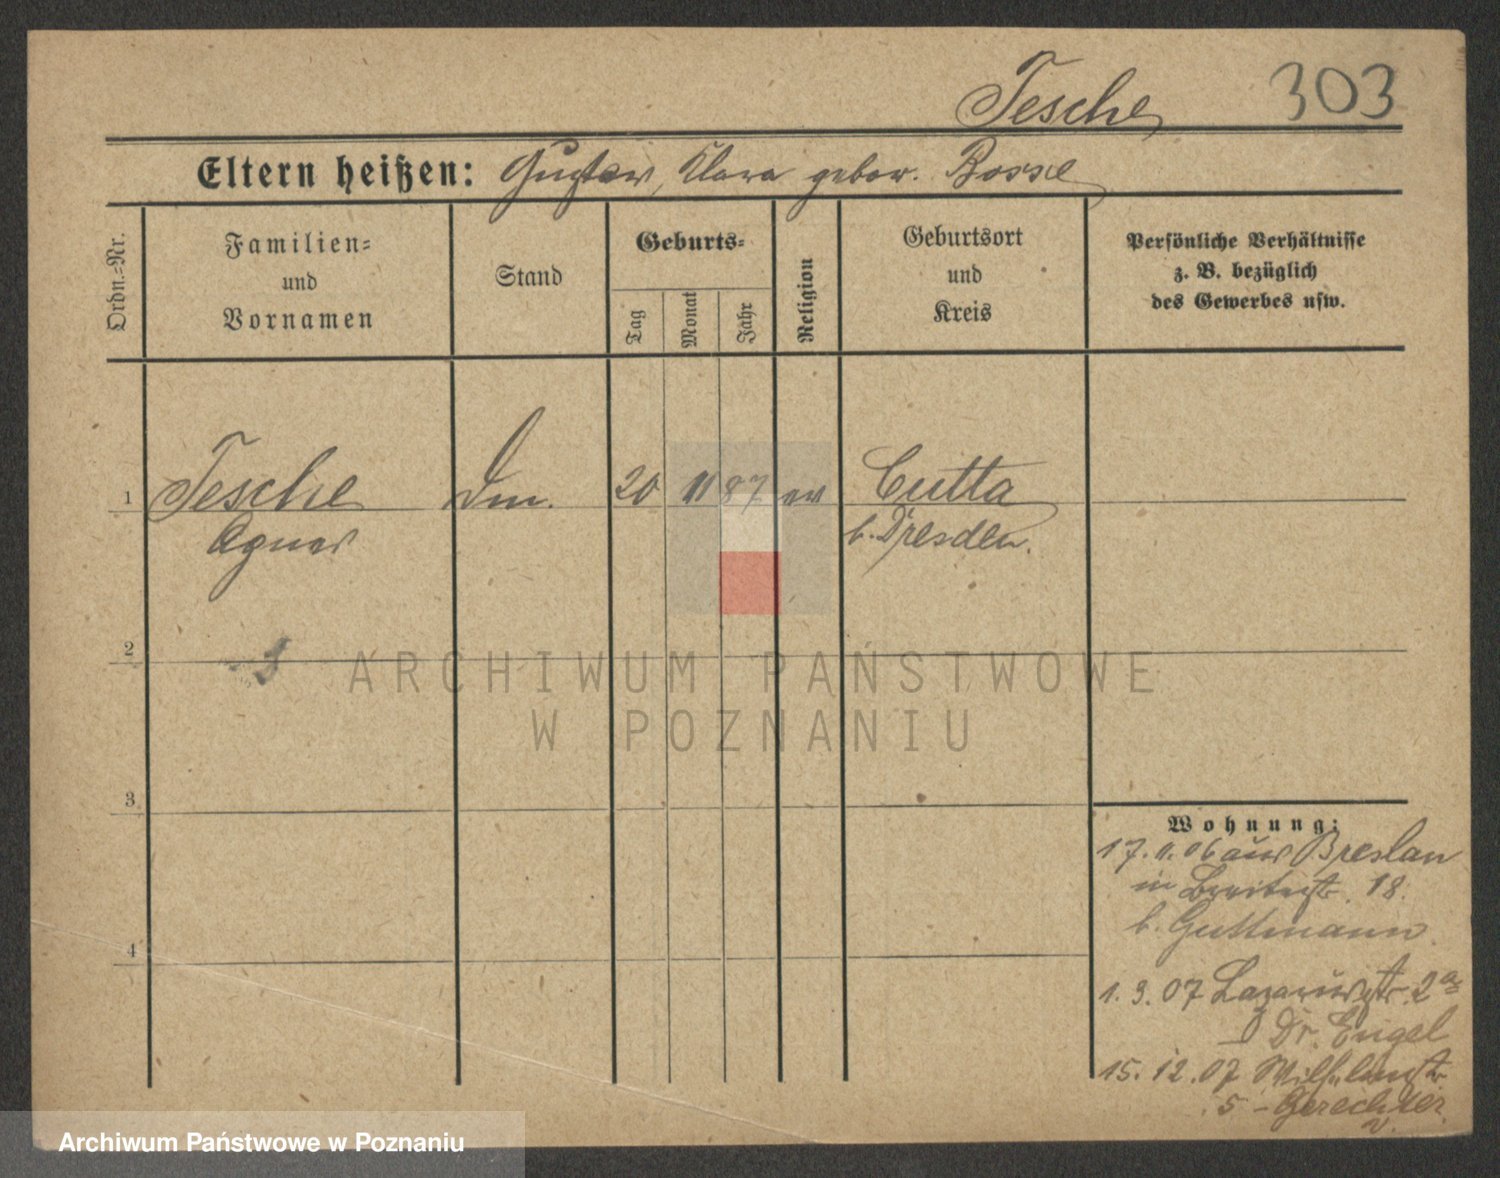 Tesche 303
Eltern heißen: Gustav, Klara gebor. Bossel
Ordn.-Nr.
Familien-
und
Vornamen
Stand
Geburts-
Tag
Monat
Jahr
Religion
Geburtsort
und
Kreis
Persönliche Verhältnisse
z. B. bezüglich
des Gewerbes usw.
1 Tesche 20 11 87 ev Cutta
Agnes b. Dresden.
2
3
4
Wohnung:
17. 11. 06 aus Breslau
in Breitestr. 18.
b. Guttmann
1. 9. 07 Lazarusstr. 2a
Dr. Engel
15. 12. 07 Wilhelmstr
5 - Gerechter
ARCHIWUM PAŃSTWOWE
W POZNANIU
Archiwum Państwowe w Poznaniu